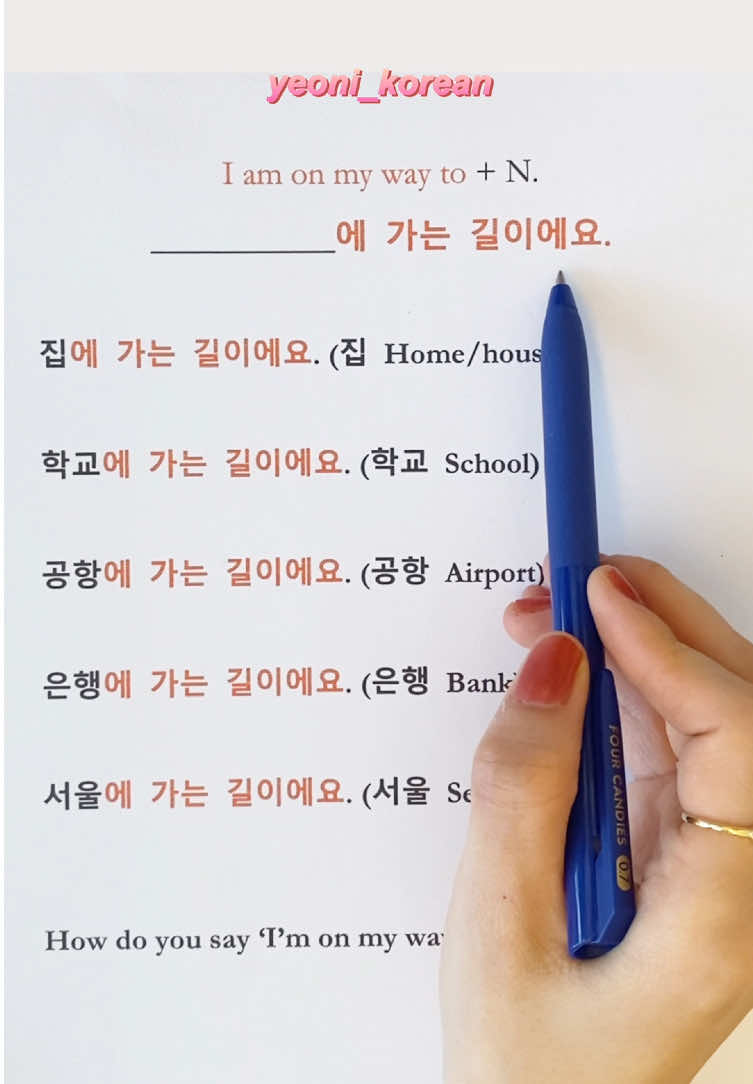 yeoni_korean
I am on my way to + N.
__________에 가는 길이에요.
집에 가는 길이에요. (집 Home/hous
학교에 가는 길이에요. (학교 School)
공항에 가는 길이에요. (공항 Airport)
은행에 가는 길이에요. (은행 Bank
서울에 가는 길이에요. (서울 Se
How do you say ‘I’m on my way
FOUR CANDIES 0.7